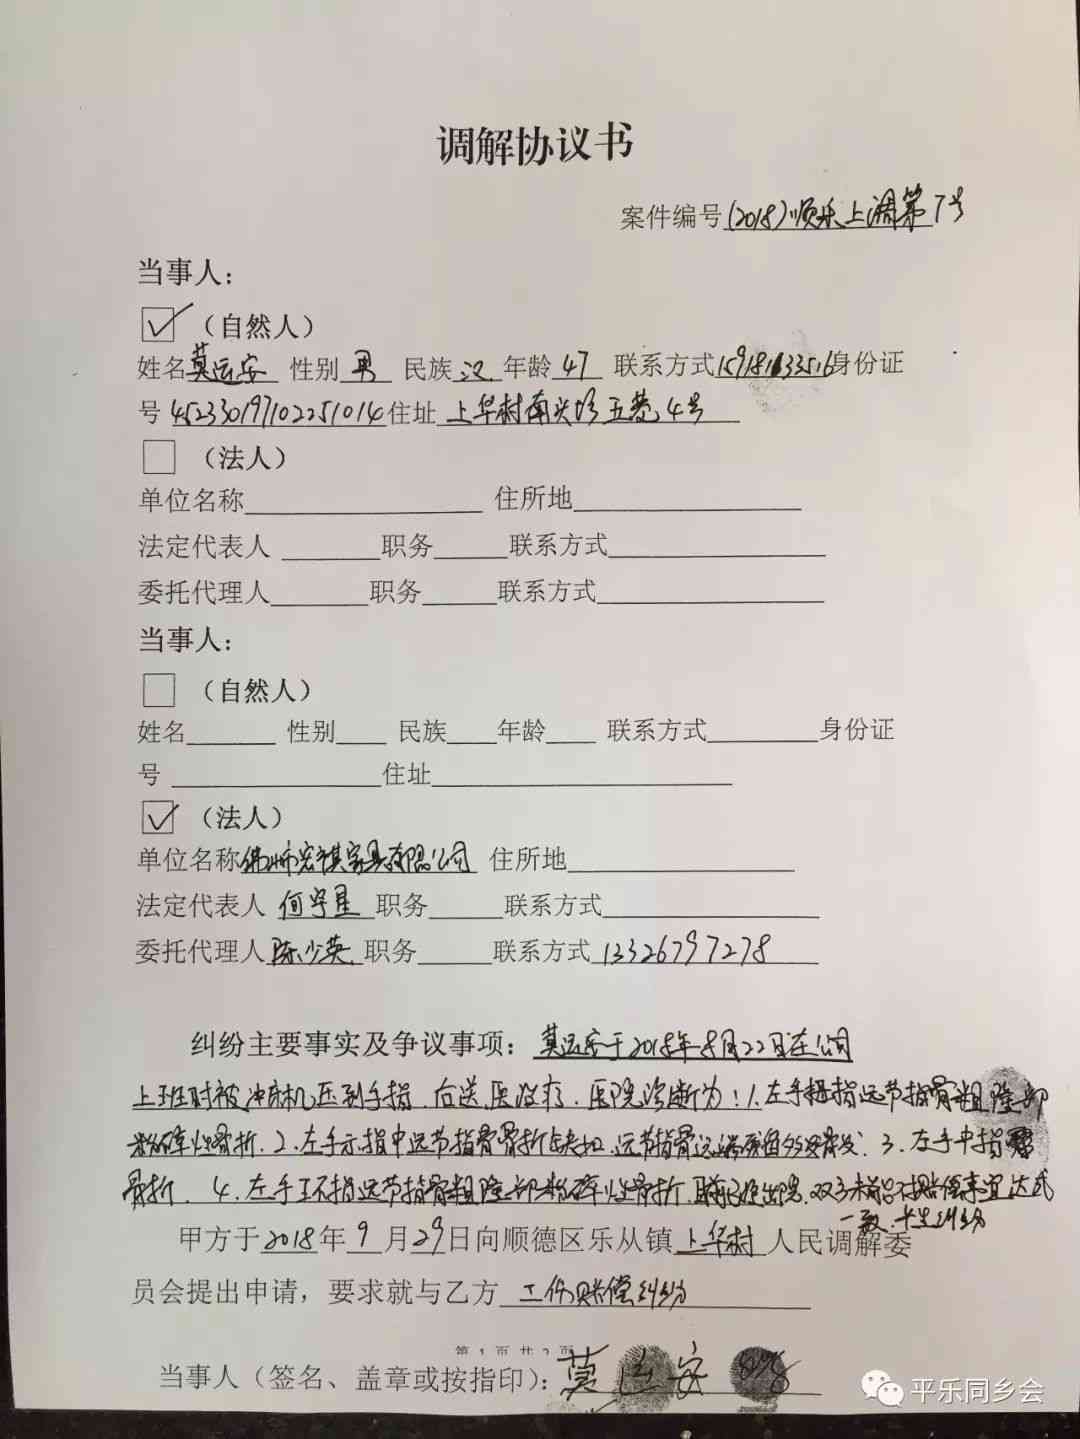 调解协议书
案件编号(2018)顺乐上调第7号
当事人：
☑（自然人）
姓名莫运安 性别 男 民族 汉 年龄 47 联系方式 身份证
号 452330197102251014 住址 上华村南兴坊五巷4号
□（法人）
单位名称 住所地
法定代表人 职务 联系方式
委托代理人 职务 联系方式
当事人：
□（自然人）
姓名 性别 民族 年龄 联系方式 身份证
号 住址
☑（法人）
单位名称 佛山市宏祺家具有限公司 住所地
法定代表人 何宇星 职务 联系方式
委托代理人 陈少英 职务 联系方式 13326797278
纠纷主要事实及争议事项：莫运安于2018年8月22日在公司
上班时被冲床机压到手指，后送医治疗，医院诊断为：1.左手拇指远节指骨粗隆部
粉碎性骨折．2．左手示指中远节指骨骨折缺损，远节指骨远端 3．左手中指
骨折．4．左手环指远节指骨粗隆部粉碎性骨折， 出院．双方未能就赔偿事宜达成
一致，产生纠纷
甲方于2018年9月29日向顺德区乐从镇 上华村 人民调解委
员会提出申请，要求就与乙方 工伤赔偿纠纷
第 1 页 共 2 页
当事人（签名、盖章或按指印）：莫运安
平乐同乡会